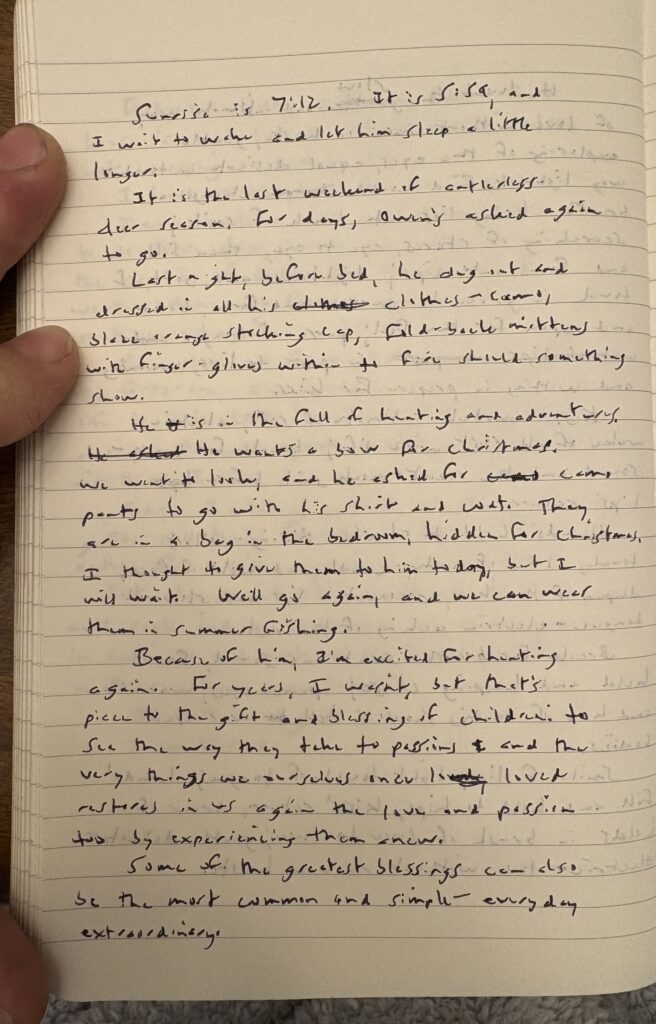 Sunrise is 7:12. It is 5:59, and
I wait to wake and let him sleep a little
longer.
It is the last weekend of antlerless
deer season. For days, Owen's asked again
to go.
Last night, before bed, he dug out and
dressed in all his clothes clothes – camo,
blaze orange stocking cap, fold-back mittens
with finger-gloves within to fire should something
show.
He is in the fall of hunting and adventures.
He asked He wants a bow for Christmas.
We went to look, and he asked for camo
pants to go with his shirt and coat. They
are in a bag in the bedroom, hidden for Christmas.
I thought to give them to him today, but I
will wait. We'll go again, and we can wear
them in summer fishing.
Because of him, I'm excited for hunting
again. For years, I wasn't, but that's
piece to the gift and blessing of children: to
see the way they take to passions and the
very things we ourselves once loved
restores in us again the love and passion
too by experiencing them anew.
Some of the greatest blessings can also
be the most common and simple – everyday
extraordinary.